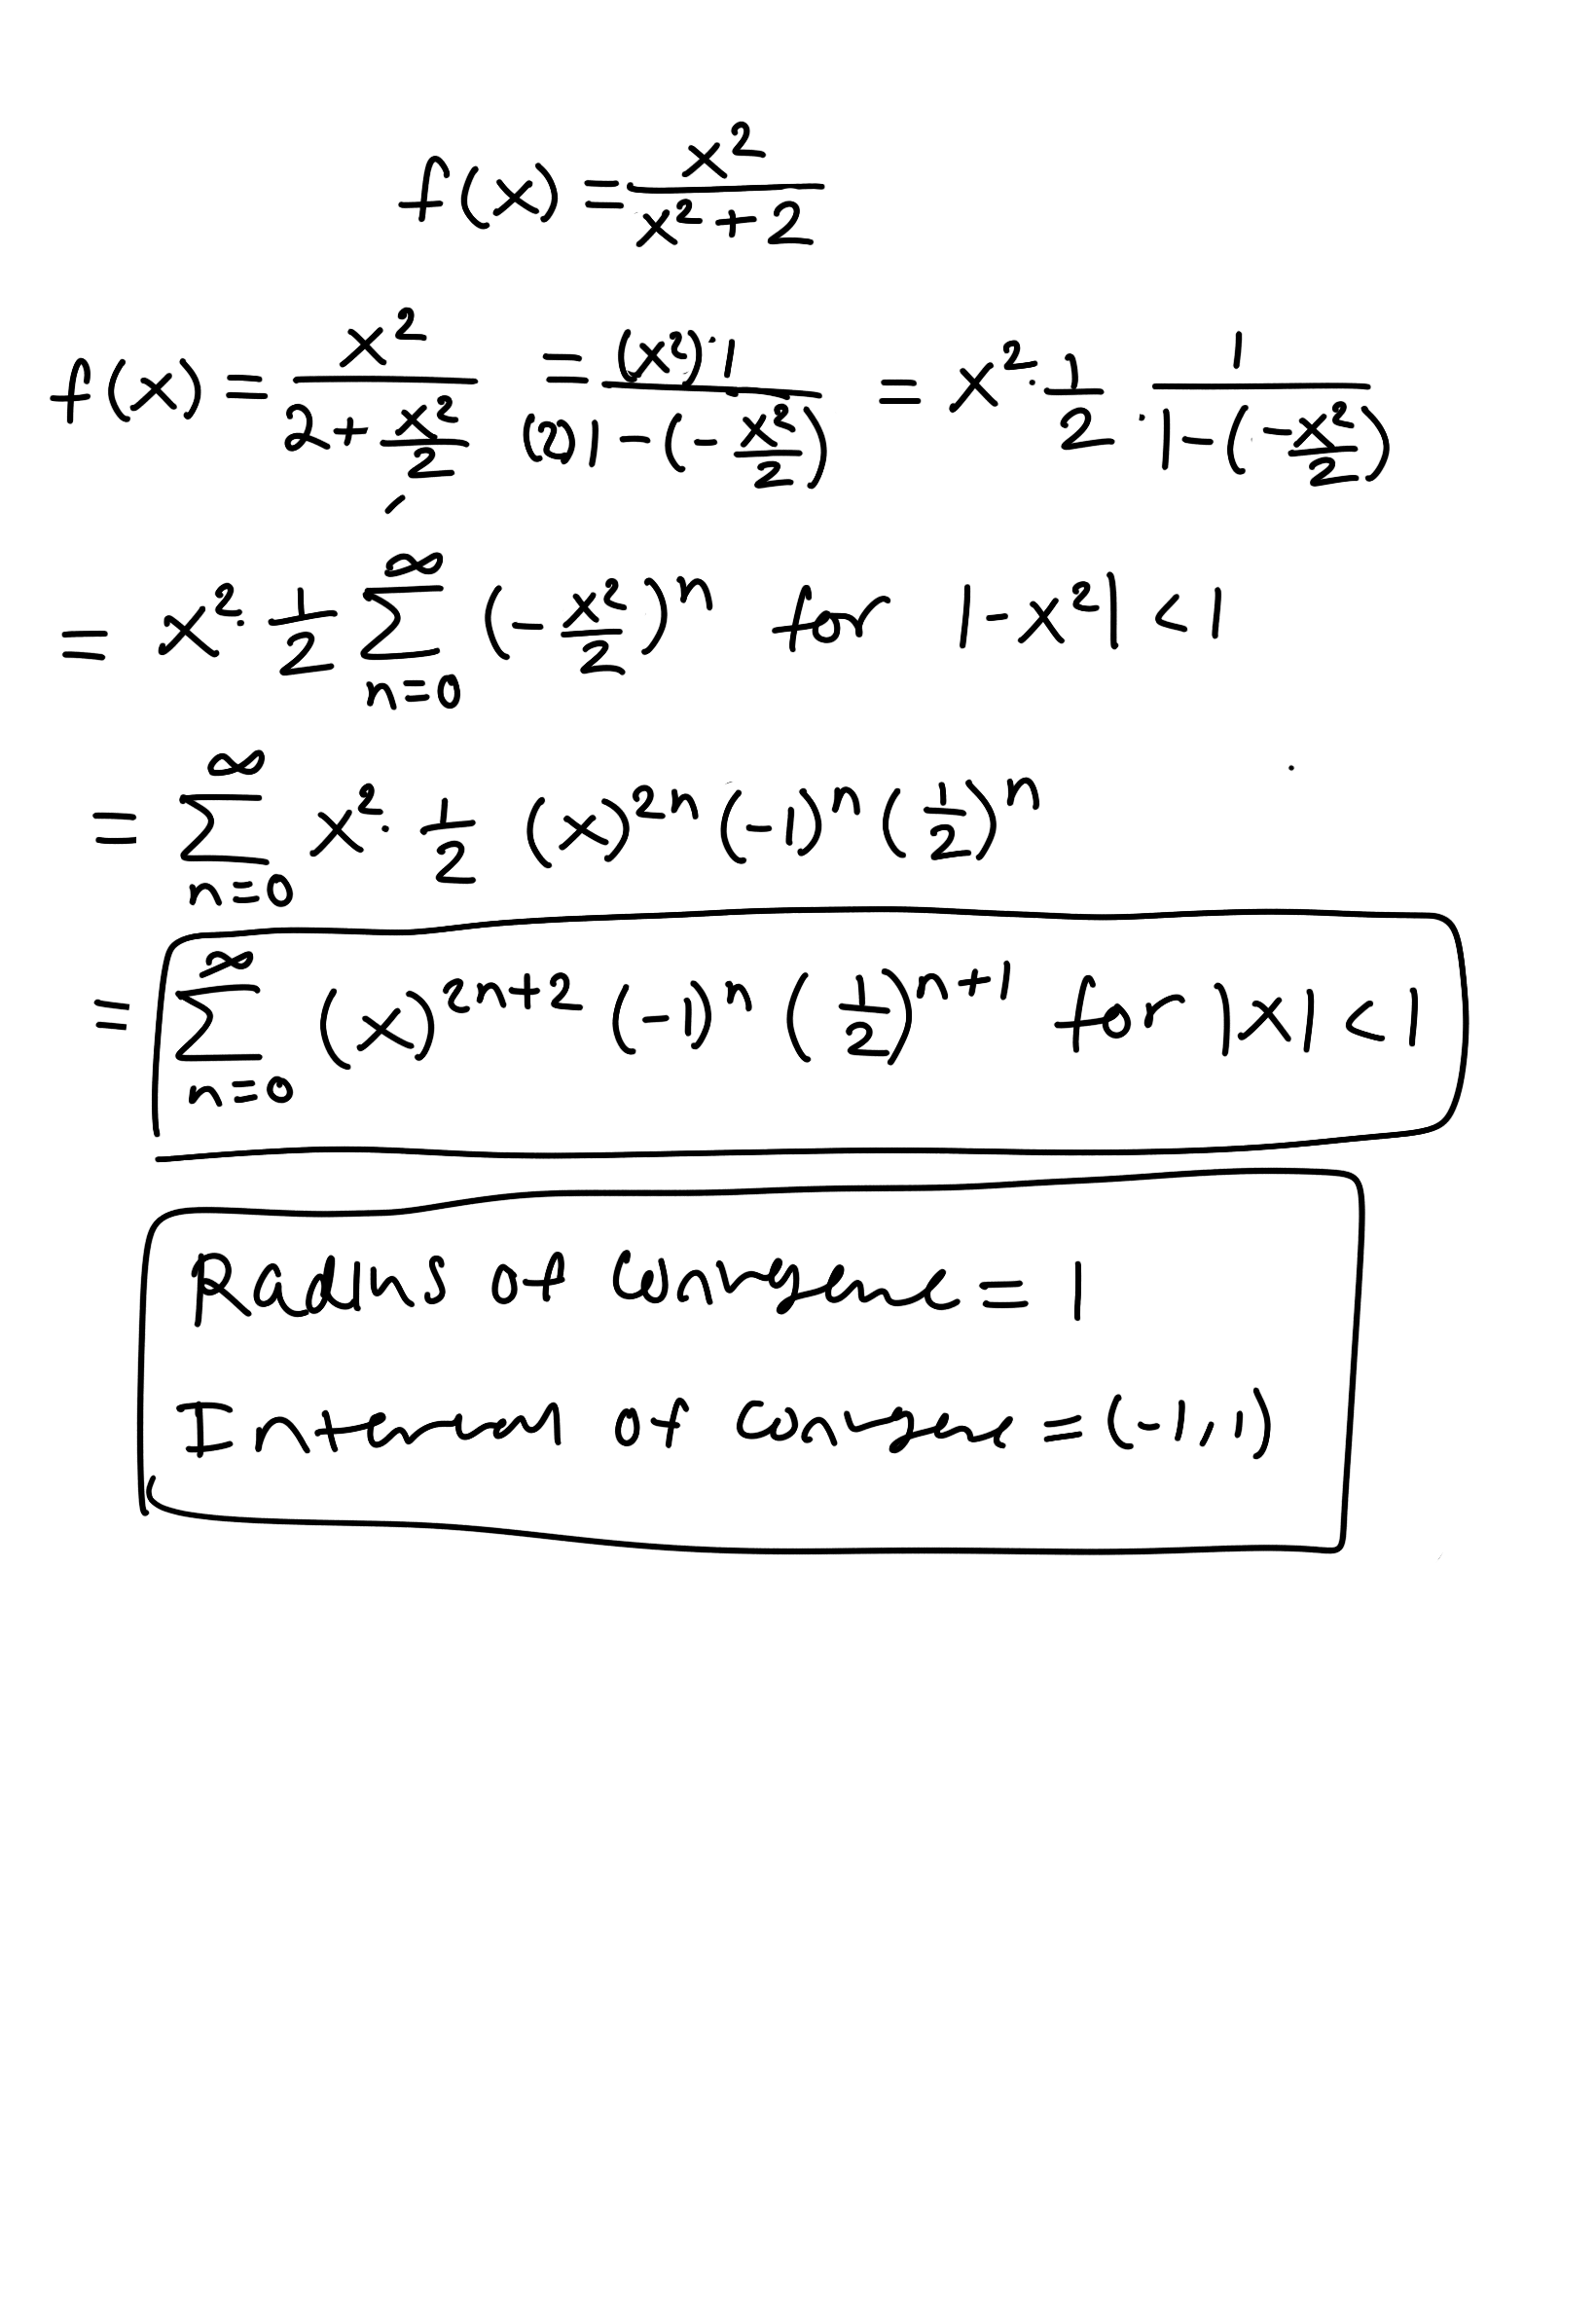 f(x) = x²/(x²+2)
f(x) = x²/(2+x²/2) = (x²)·1/((2)1-(-x²/2)) = x²·1/2·1/(1-(-x²/2))
= x²·1/2 ∑_{n=0}^{∞} (-x²/2)ⁿ for |-x²| < 1
= ∑_{n=0}^{∞} x²·1/2 (x)²ⁿ (-1)ⁿ (1/2)ⁿ
= ∑_{n=0}^{∞} (x)²ⁿ⁺² (-1)ⁿ (1/2)ⁿ⁺¹ for |x| < 1
Radius of Convergence = 1
Interval of convergence = (-1,1)